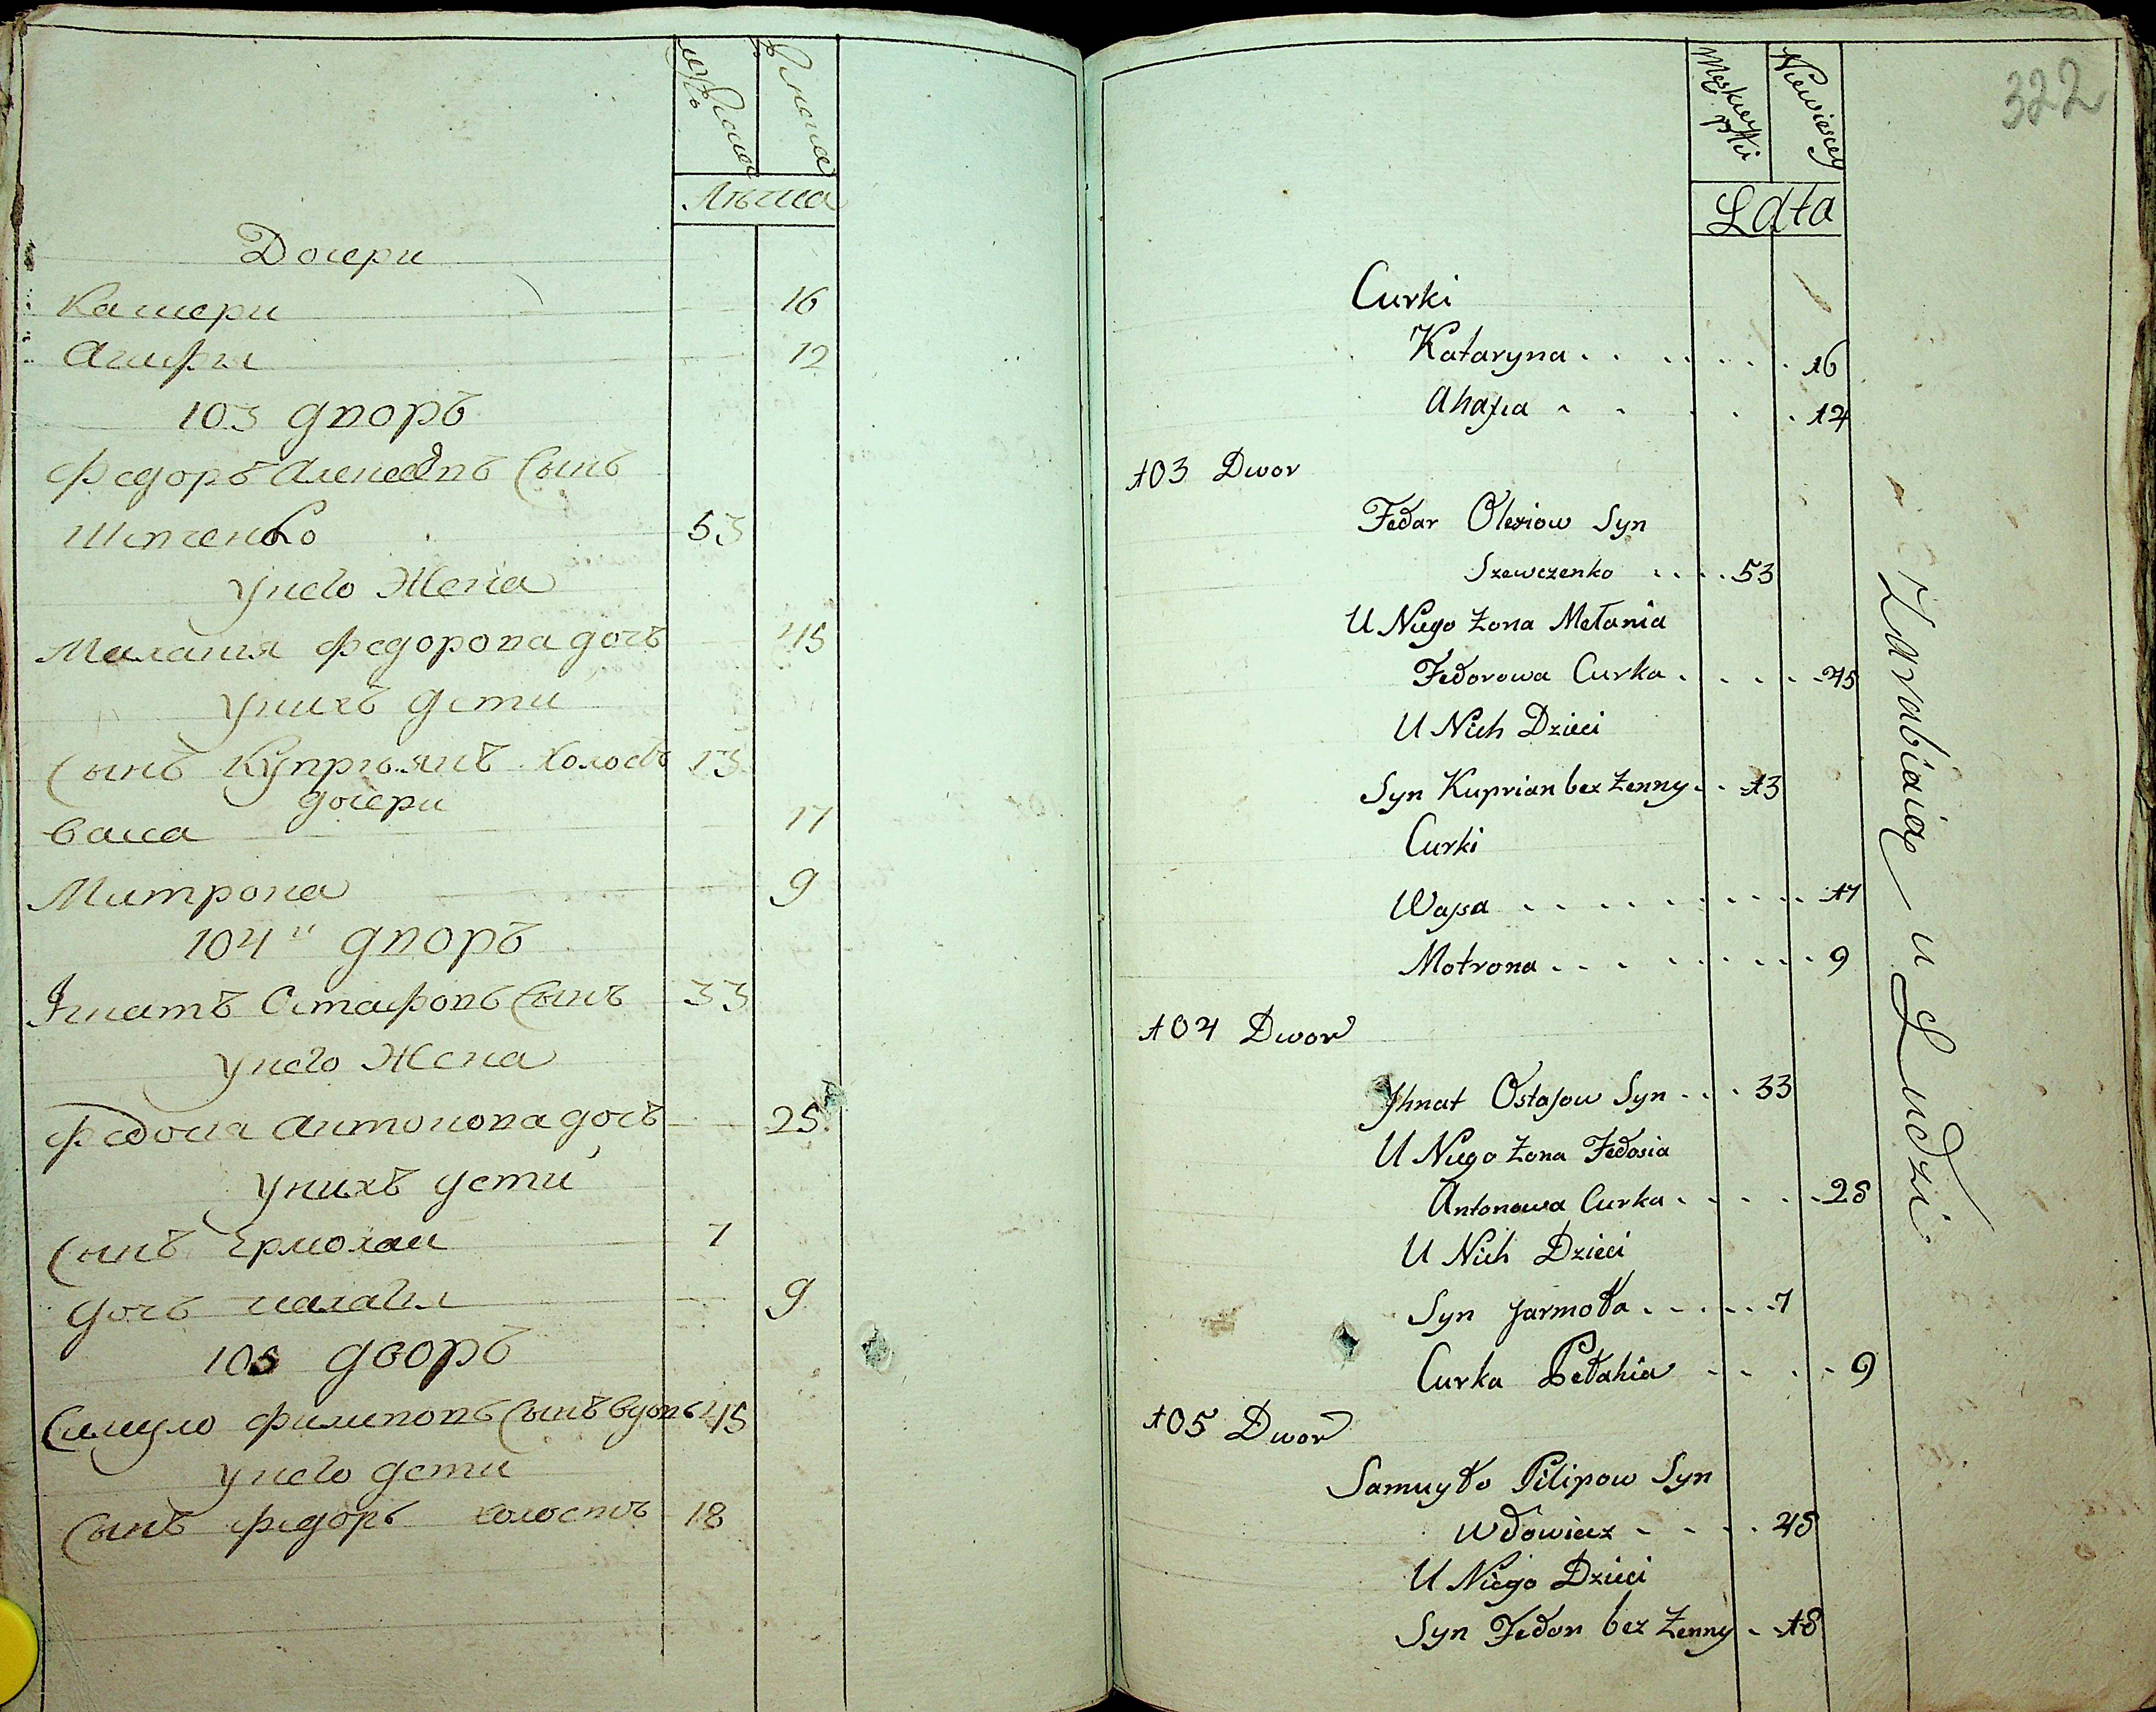 мужска
женска
Лѣта
Дочери
Катери 16
Агафи 12
103 дворъ
Федоръ Алексѣевъ Сынъ
Шевченко 53
У него Жена
Малания Федорова дочь 45
У нихъ дети
Сынъ Куприянъ холостъ 13
дочери
Васса 17
Митрона 9
104 дворъ
Игнатъ Остафовъ Сынъ 33
У него Жена
Федосия Антонова дочь 25
У нихъ дети
Сынъ Ермолай 7
дочь Палагия 9
105 дворъ
Самуло Филиповъ Сынъ вдовъ 45
У него дети
Сынъ Федоръ холостъ 18
322
Męskiey
Płci
Niewiesciey
Lata
Curki
Kataryna 16
Ahafia 12
103 Dwor
Fedor Olexiow Syn
Szewczenko 53
U Niego Żona Mełania
Fedorowa Curka 45
U Nich Dzieci
Syn Kuprian bez Żenny 13
Curki
Wassa 17
Motrona 9
104 Dwor
Jhnat Ostafow Syn 33
U Niego Żona Fedosia
Antonowa Curka 25
U Nich Dzieci
Syn Jarmoła 7
Curka Pełahia 9
105 Dwor
Samuyło Pilipow Syn
Wdowiec 45
U Niego Dzieci
Syn Fedor bez Żenny 18
Zarabiaią u Ludzi